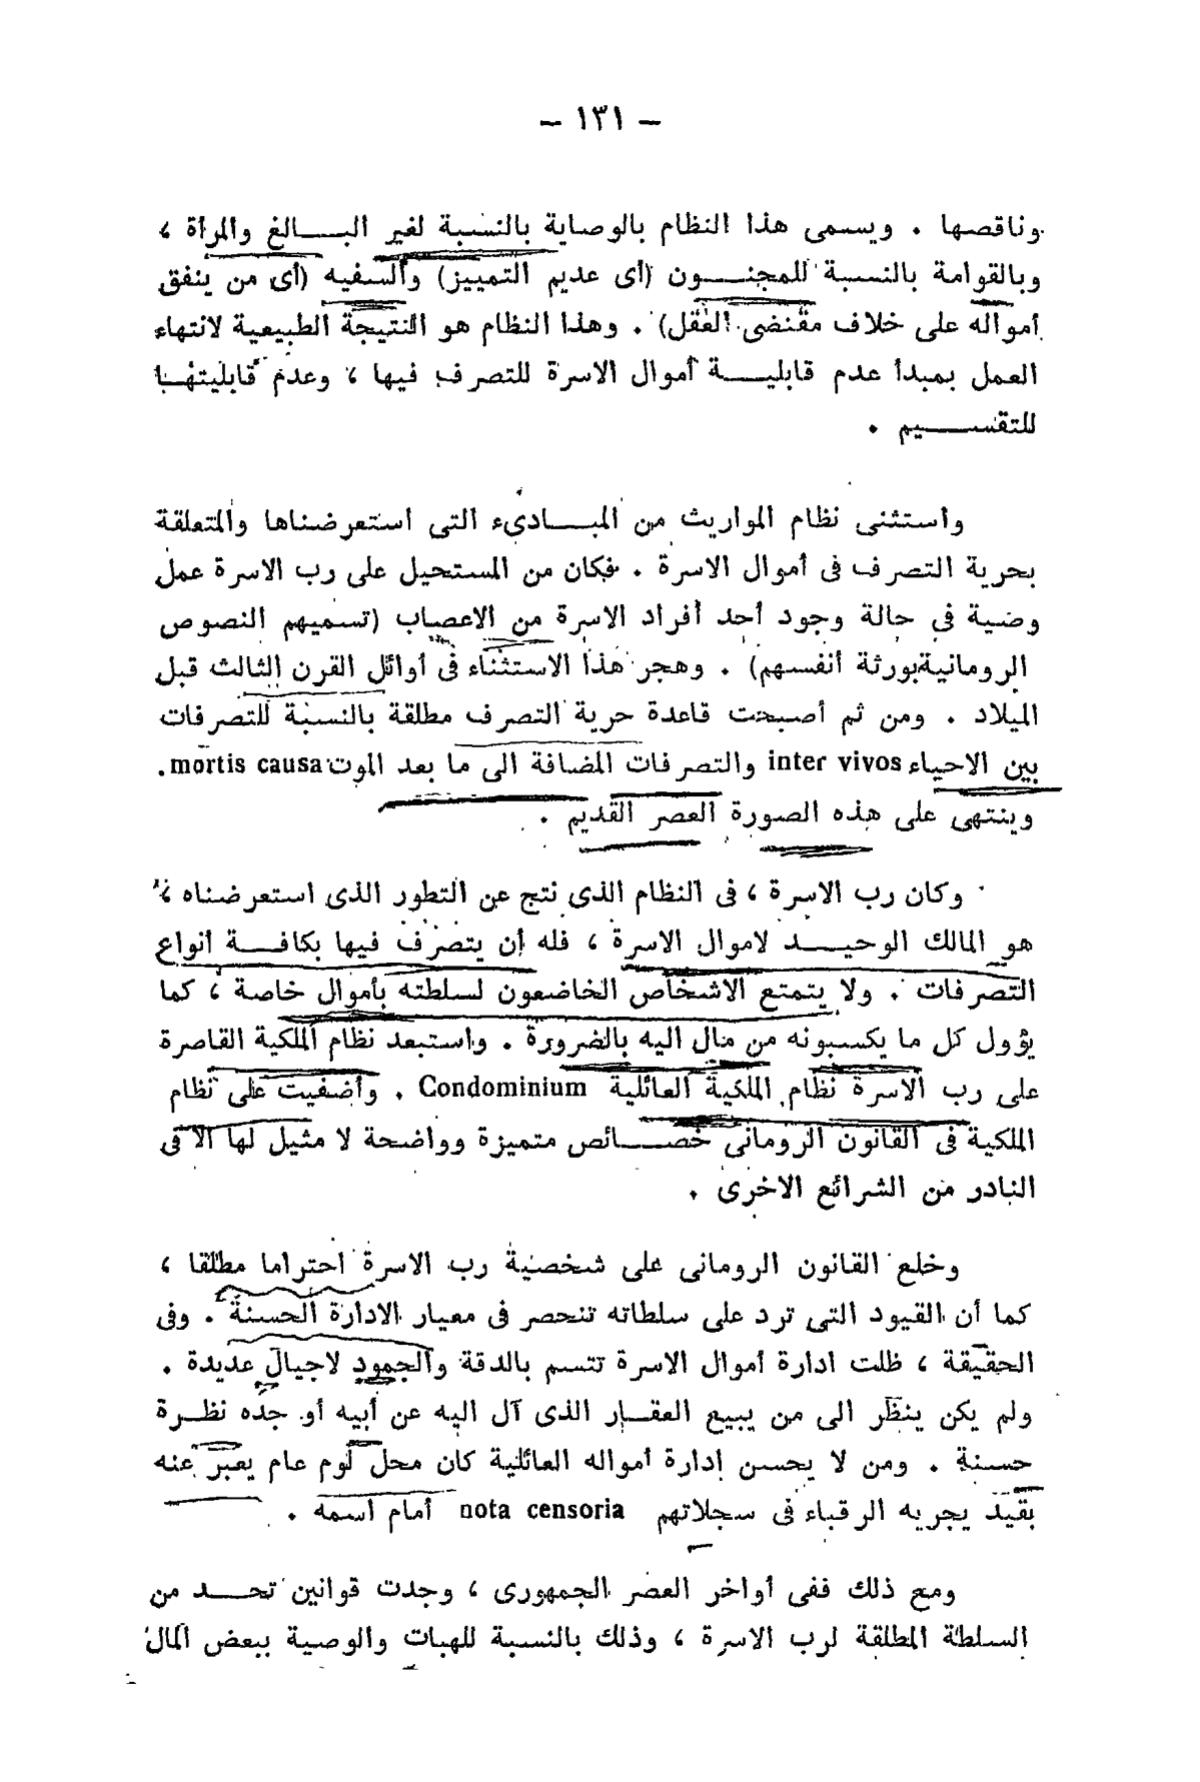 — ١٣١ —
وناقصها . ويسمى هذا النظام بالوصاية بالنسبة لغير البالغ والمرأة ،
وبالقوامة بالنسبة للمجنون (أى عديم التمييز) والسفيه (أى من ينفق
أمواله على خلاف مقتضى العقل) . وهذا النظام هو النتيجة الطبيعية لانتهاء
العمل بمبدأ عدم قابلية أموال الاسرة للتصرف فيها ، وعدم قابليتها
للتقسيم .
واستثنى نظام المواريث من المبادىء التى استعرضناها والمتعلقة
بحرية التصرف فى أموال الاسرة . فكان من المستحيل على رب الاسرة عمل
وصية فى حالة وجود أحد أفراد الاسرة من الاعصاب (تسميهم النصوص
الرومانية بورثة أنفسهم) . وهجر هذا الاستثناء فى أوائل القرن الثالث قبل
الميلاد . ومن ثم أصبحت قاعدة حرية التصرف مطلقة بالنسبة للتصرفات
بين الاحياء inter vivos والتصرفات المضافة الى ما بعد الموت mortis causa.
وينتهى على هذه الصورة العصر القديم .
وكان رب الاسرة ، فى النظام الذى نتج عن التطور الذى استعرضناه ،
هو المالك الوحيد لاموال الاسرة ، فله أن يتصرف فيها بكافة أنواع
التصرفات . ولا يتمتع الاشخاص الخاضعون لسلطته بأموال خاصة ، كما
يؤول كل ما يكسبونه من مال اليه بالضرورة . واستبعد نظام الملكية القاصرة
على رب الاسرة نظام الملكية العائلية Condominium . وأضفيت على نظام
الملكية فى القانون الرومانى خصائص متميزة وواضحة لا مثيل لها الا فى
النادر من الشرائع الاخرى .
وخلع القانون الرومانى على شخصية رب الاسرة احتراما مطلقا ،
كما أن القيود التى ترد على سلطاته تنحصر فى معيار الادارة الحسنة . وفى
الحقيقة ، ظلت ادارة أموال الاسرة تتسم بالدقة والجمود لاجيال عديدة .
ولم يكن ينظر الى من يبيع العقار الذى آل اليه عن أبيه أو جده نظرة
حسنة . ومن لا يحسن إدارة أمواله العائلية كان محل لوم عام يعبر عنه
بقيد يجريه الرقباء فى سجلاتهم nota censoria أمام اسمه .
ومع ذلك ففى أواخر العصر الجمهورى ، وجدت قوانين تحد من
السلطة المطلقة لرب الاسرة ، وذلك بالنسبة للهبات والوصية ببعض المال